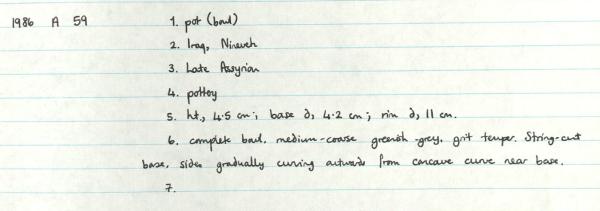 1986 A 59 1. pot (bowl)
2. Iraq, Nineveh
3. Late Assyrian
4. pottery
5. ht., 4.5 cm; base d, 4.2 cm; rim d, 11 cm.
6. complete bowl. medium-coarse greenish-grey, grit temper. String-cut
base, sides gradually curving outwards from concave curve near base.
7.